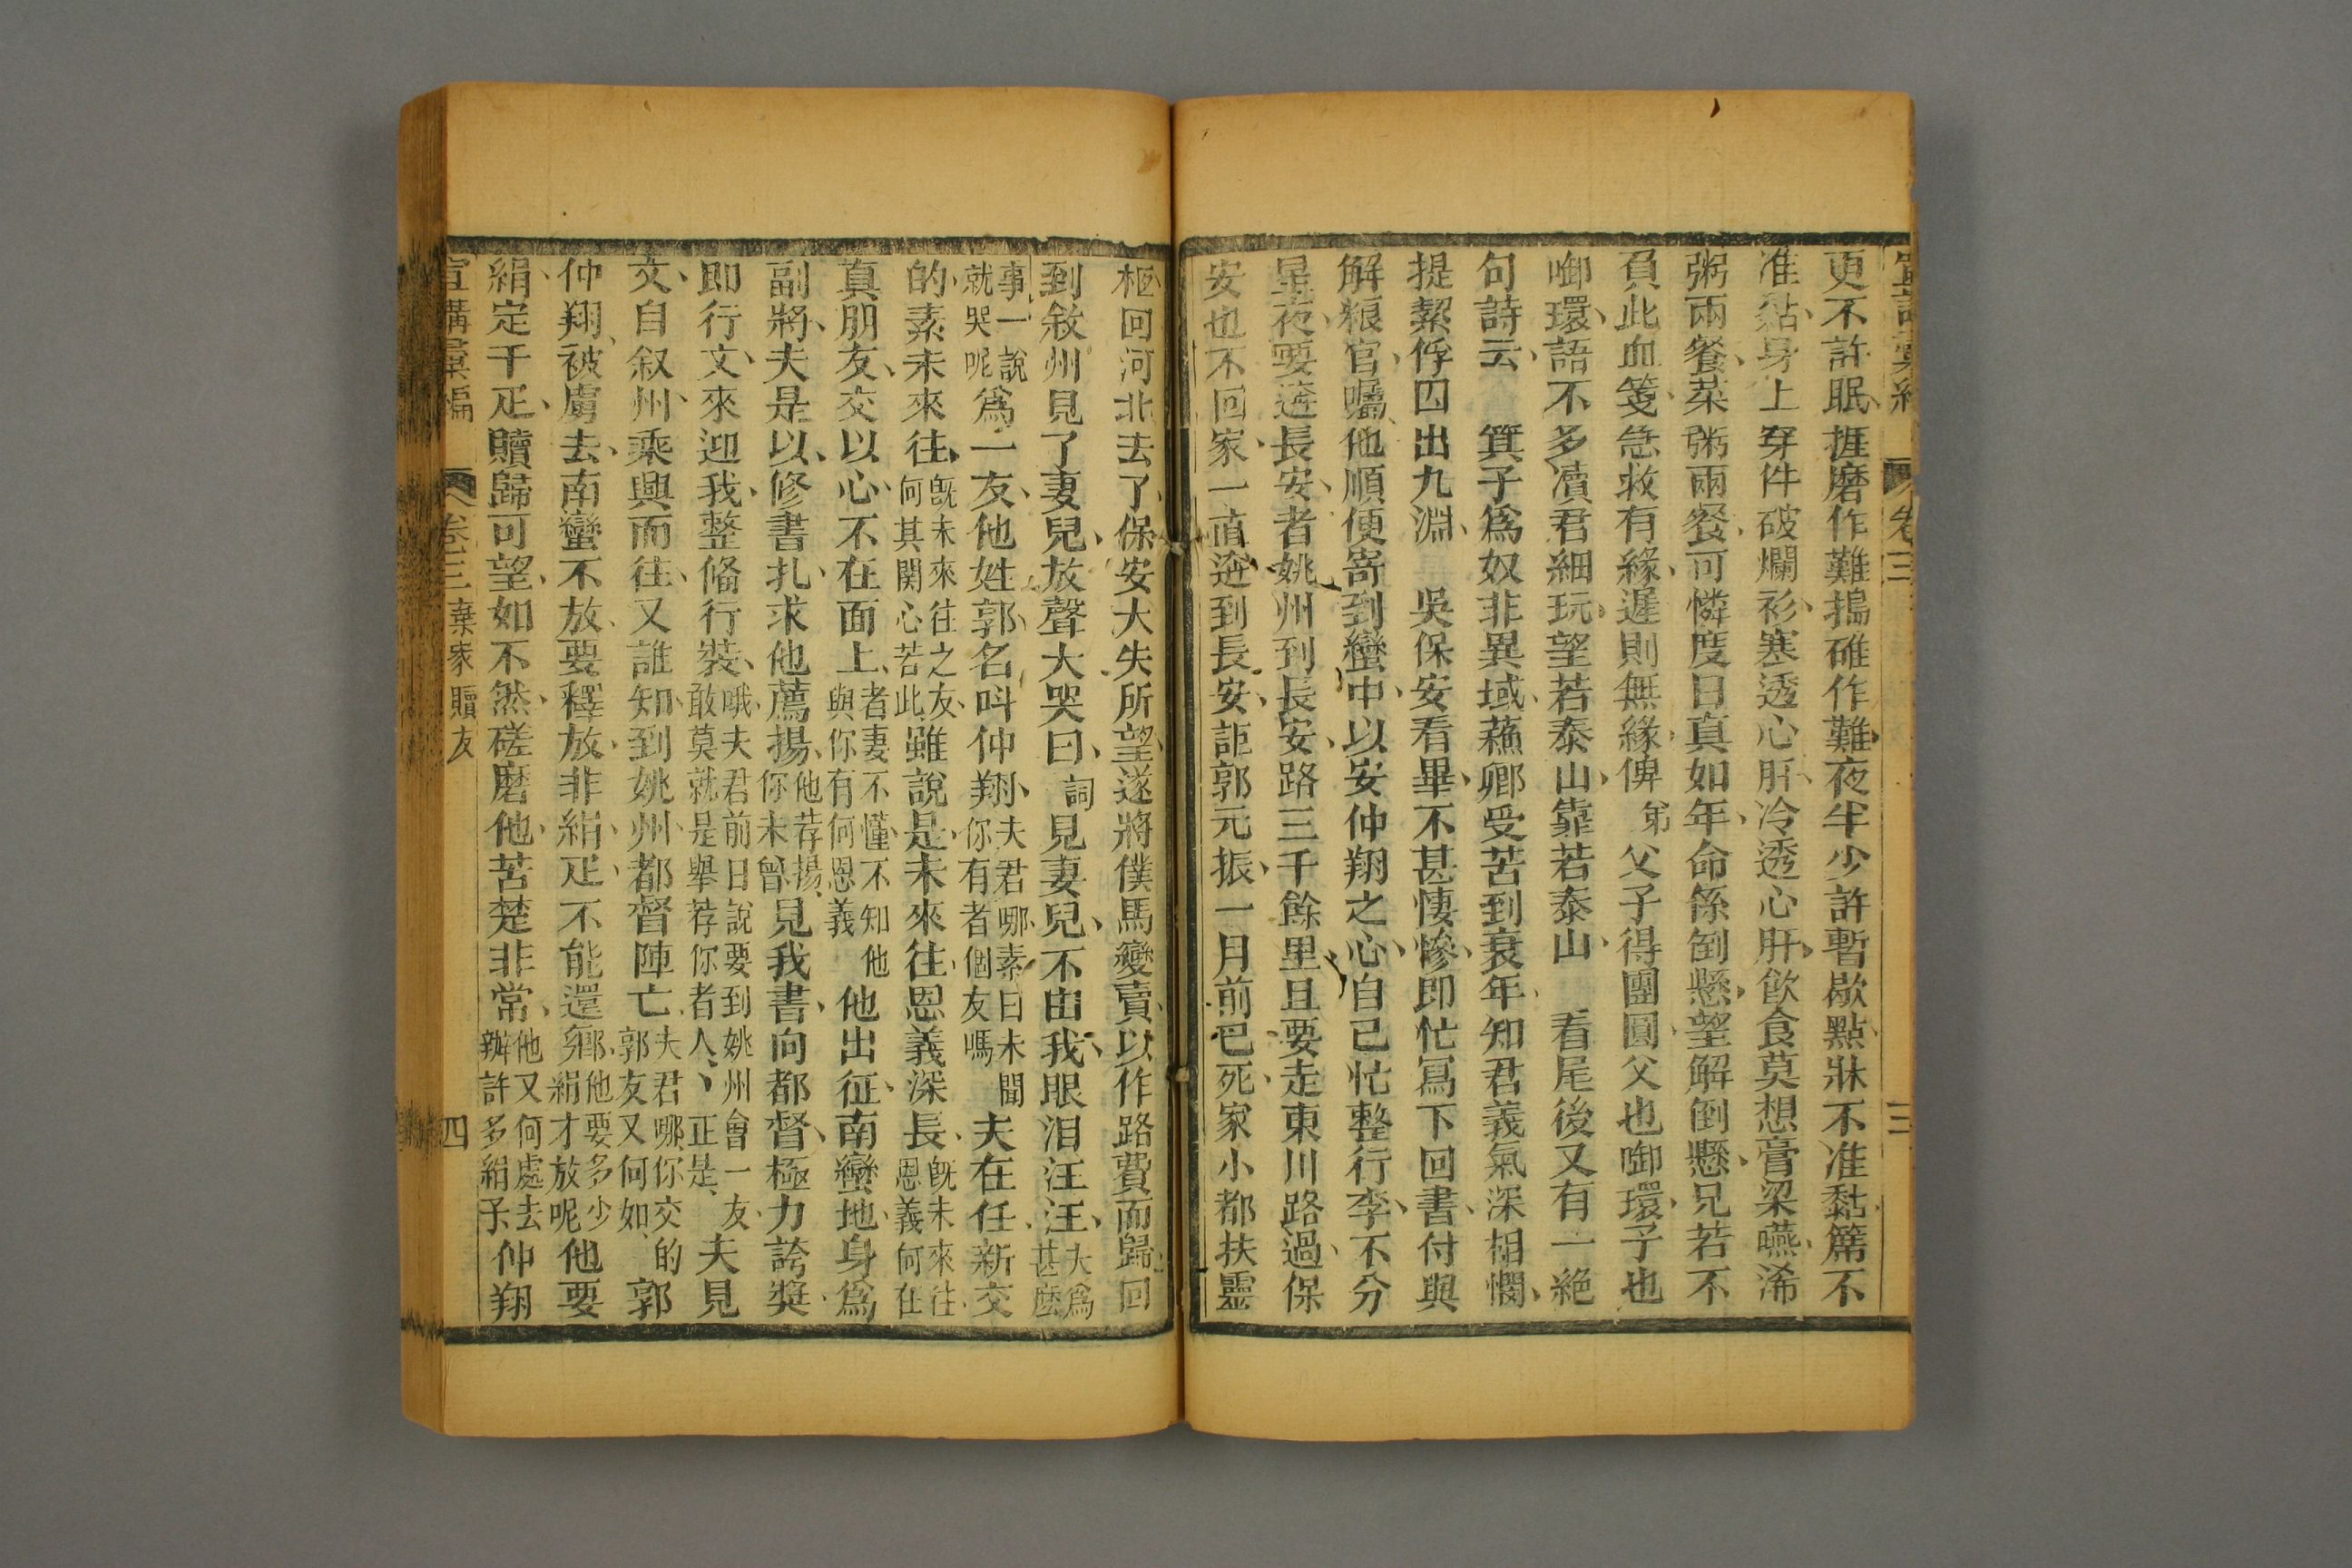 更不許眠捱磨作難搗碓作難夜半少許暫歇點牀不准黏簾不
准黏身上穿件破爛衫寒透心肝冷透心肝飲食莫想膏梁嚥浠
粥兩餐菜粥兩餐可憐度日真如年命係倒懸望解倒懸兄若不
負此血箋急救有緣遲則無緣俾弟父子得團圓父也啣環子也
啣環語不多瀆君細玩望若泰山靠若泰山 看尾後又有一絕
句詩云 箕子爲奴非異域蘓卿受苦到衰年知君義氣深相憫
提絜俘囚出九淵 吳保安看畢不甚悽慘即忙冩下回書付與
解粮官囑他順便寄到蠻中以安仲翔之心自己忙整行李不分
星夜要逩長安者姚州到長安路三千餘里且要走東川路過保
安也不回家一直逩到長安詎郭元振一月前已死家小都扶靈
宣講彙編 卷三 三
柩回河北去了保安大失所望遂將僕馬變賣以作路費而歸回
到敘州見了妻兒放聲大哭曰 詞見妻兒不由我眼泪汪汪夫爲甚麽
事一說就哭呢爲一友他姓郭名叫仲翔夫君哪素日未聞你有者個友嗎夫在任新交
的素未來往旣未來往之友何其関心若此雖說是未來往恩義深長旣未來往恩義何在
真朋友交以心不在面上者妻不懂不知他與你有何恩義他出征南蠻地身爲
副將夫是以修書扎求他薦揚他荐揚你未曾見我書向都督極力誇奬
即行文來迎我整俻行裝哦夫君前日說要到姚州會一友敢莫就是舉荐你者人正是夫見
文自叙州乘興而往又誰知到姚州都督陣亡夫君哪你交的郭友又何如郭
仲翔被虜去南蠻不放要釋放非絹疋不能還鄉他要多少絹才放呢他要
絹定千疋贖歸可望如不然磋磨他苦楚非常他又何處去辦許多絹子仲翔
宣講彙編 卷三 棄家贖友 四